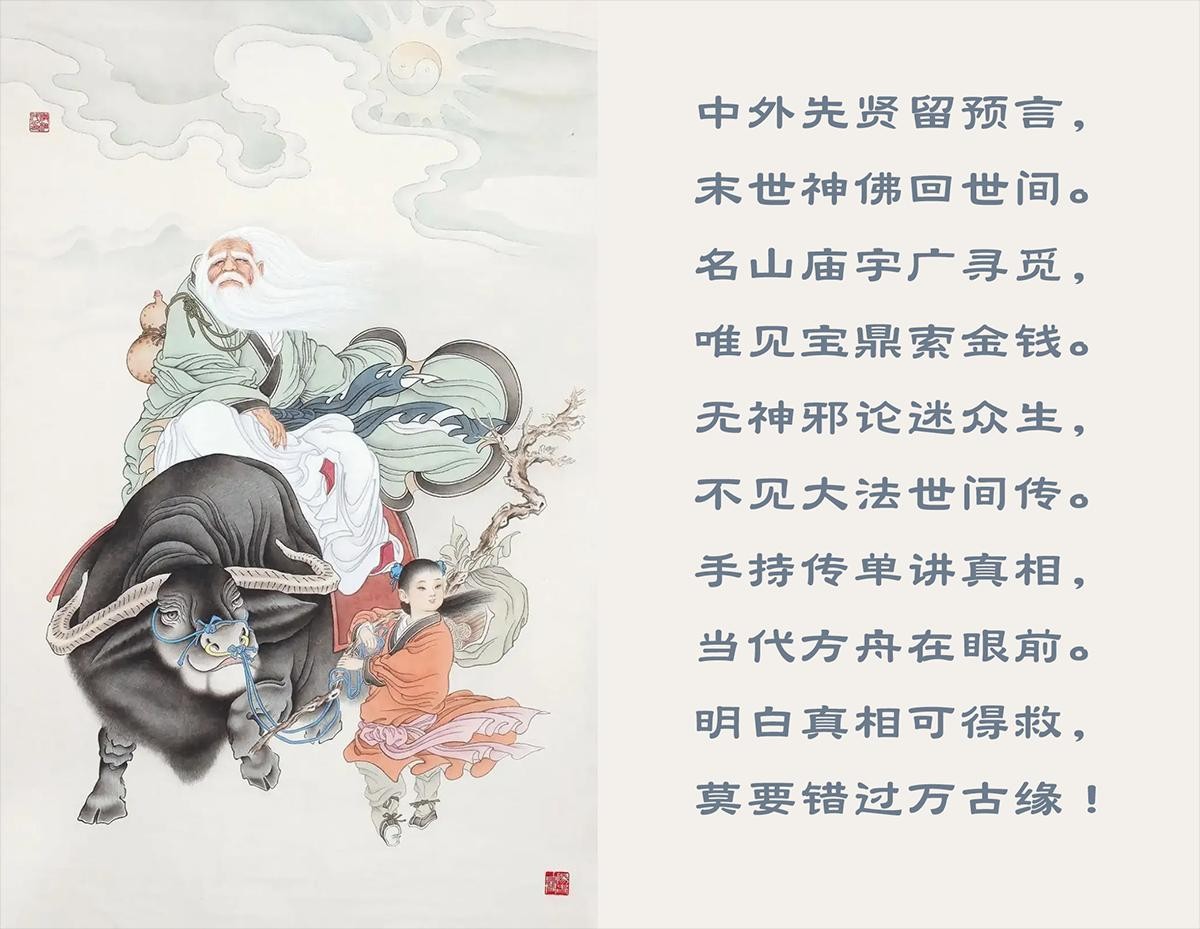 中外先贤留预言，
末世神佛回世间。
名山庙宇广寻觅，
唯见宝鼎索金钱。
无神邪论迷众生，
不见大法世间传。
手持传单讲真相，
当代方舟在眼前。
明白真相可得救，
莫要错过万古缘！